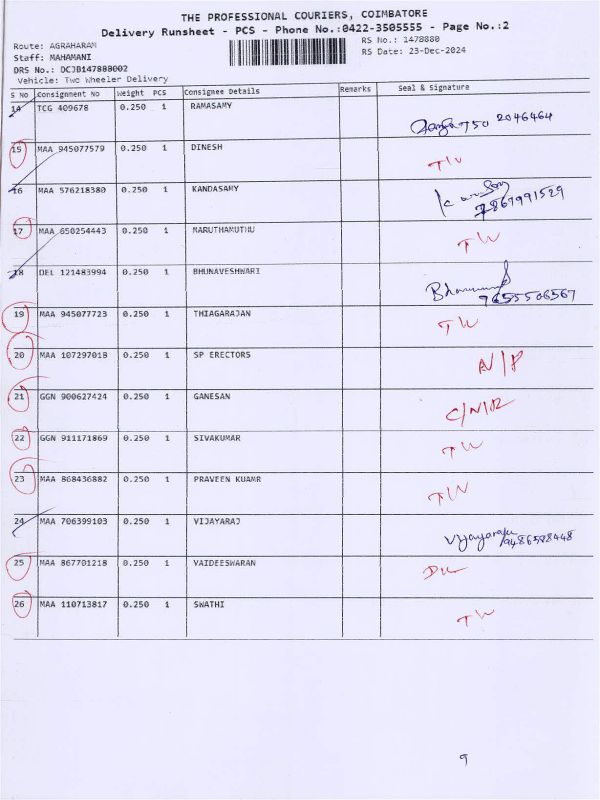 THE PROFESSIONAL COURIERS, COIMBATORE
Delivery Runsheet - PCS - Phone No.:0422-3505555 - Page No.:2
Route: AGRAHARAM RS No.: 1478880
Staff: MAHAMANI RS Date: 23-Dec-2024
DRS No.: DCJB147888002
Vehicle: Two Wheeler Delivery
S No Consignment No Weight PCS Consignee Details Remarks Seal & Signature
14 TCG 409678 0.250 1 RAMASAMY 750 2046464
15 MAA 945077579 0.250 1 DINESH TW
16 MAA 576218380 0.250 1 KANDASAMY 7867991529
17 MAA 650254443 0.250 1 MARUTHAMUTHU TW
18 DEL 121483994 0.250 1 BHUNAVESHWARI 9655506567
19 MAA 945077723 0.250 1 THIAGARAJAN TW
20 MAA 107297018 0.250 1 SP ERECTORS N/P
21 GGN 900627424 0.250 1 GANESAN C/N/R
22 GGN 911171869 0.250 1 SIVAKUMAR TW
23 MAA 868436882 0.250 1 PRAVEEN KUAMR TW
24 MAA 706399103 0.250 1 VIJAYARAJ Vijayaraju 9486588448
25 MAA 867701218 0.250 1 VAIDEESWARAN DL
26 MAA 110713817 0.250 1 SWATHI TW
9